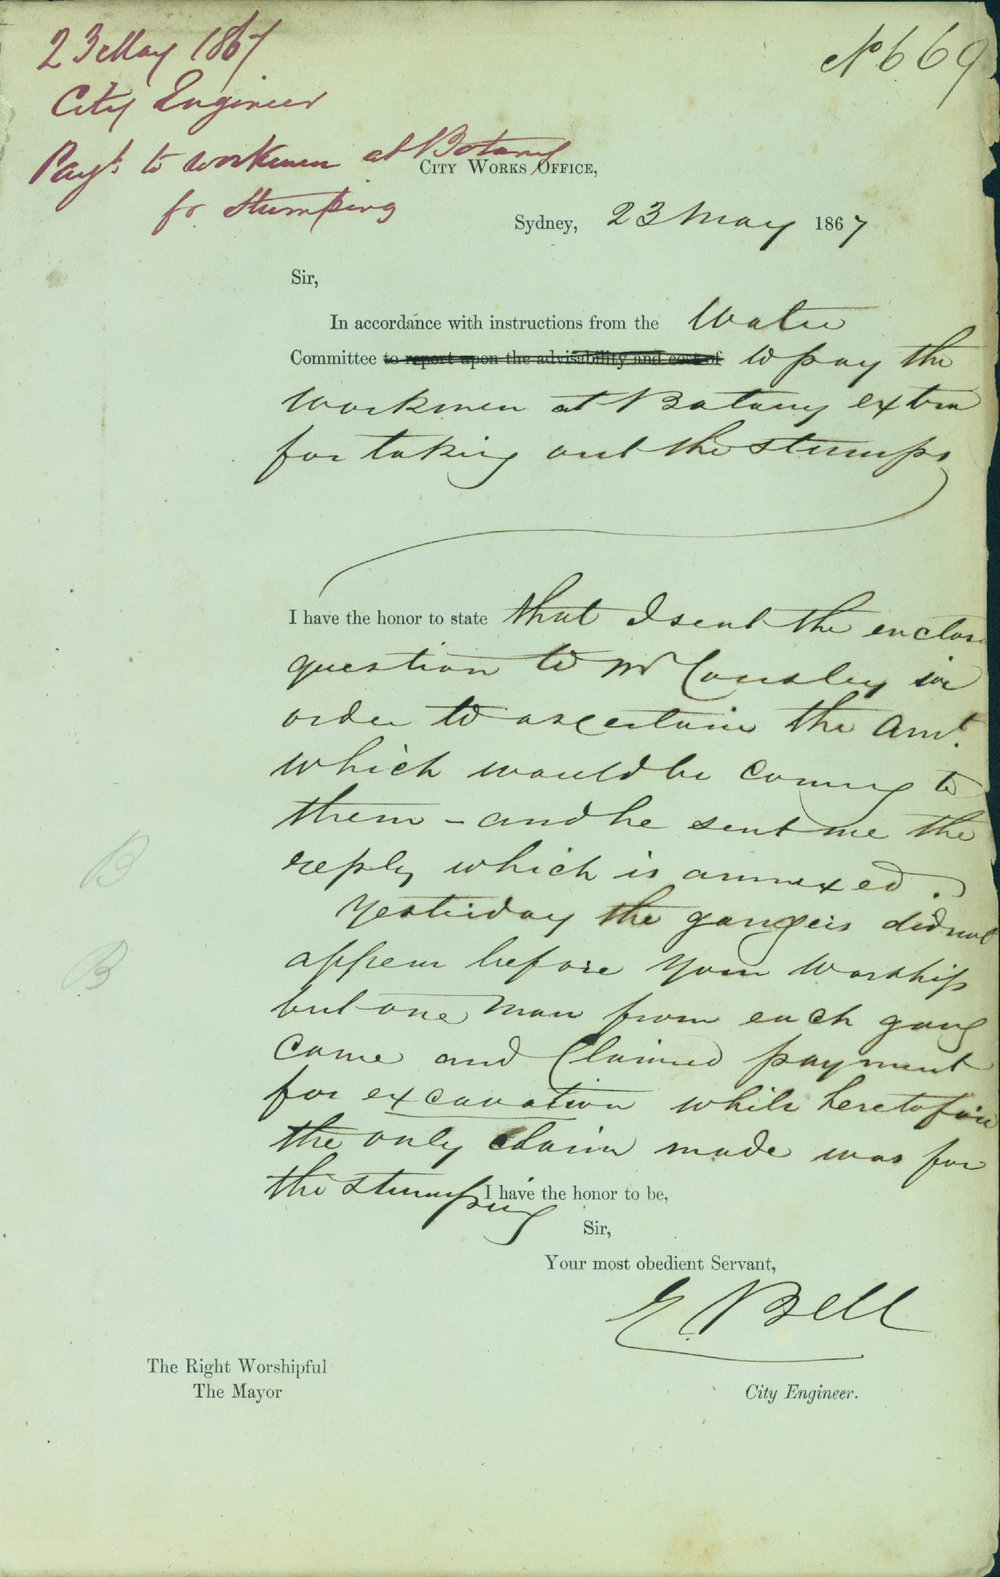 23 May 1867
City Engineer
Payt. to workmen at Botany
for Stumping
No 669
CITY WORKS OFFICE,
Sydney, 23 May 1867
Sir,
In accordance with instructions from the Water
Committee to report upon the advisability and cost of to pay the
workmen at Botany extra
for taking out the stumps
I have the honor to state that I sent the enclose
question to Mr in
order to ascertain the Amt.
which would be coming to
them – and he sent me the
reply which is annexed.
Yesterday the gangers did not
appear before your Worship
but one man from each gang
came and Claimed payment
for excavation while heretofore
the only claim made was for
the stumping I have the honor to be,
Sir,
Your most obedient Servant,
E. Bell
The Right Worshipful
The Mayor
City Engineer.
B
B